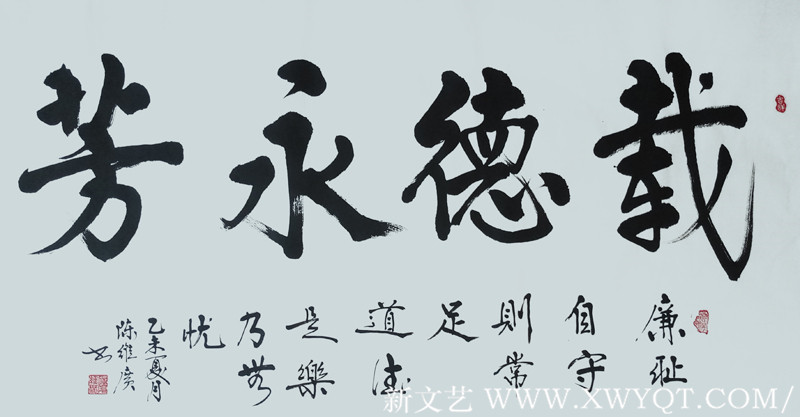 載德永芳
廉耻
自守
則常
足
道德
是樂
乃無
忧
乙未夏月
陈维廣
书
新文艺 WWW.XWYQT.COM/